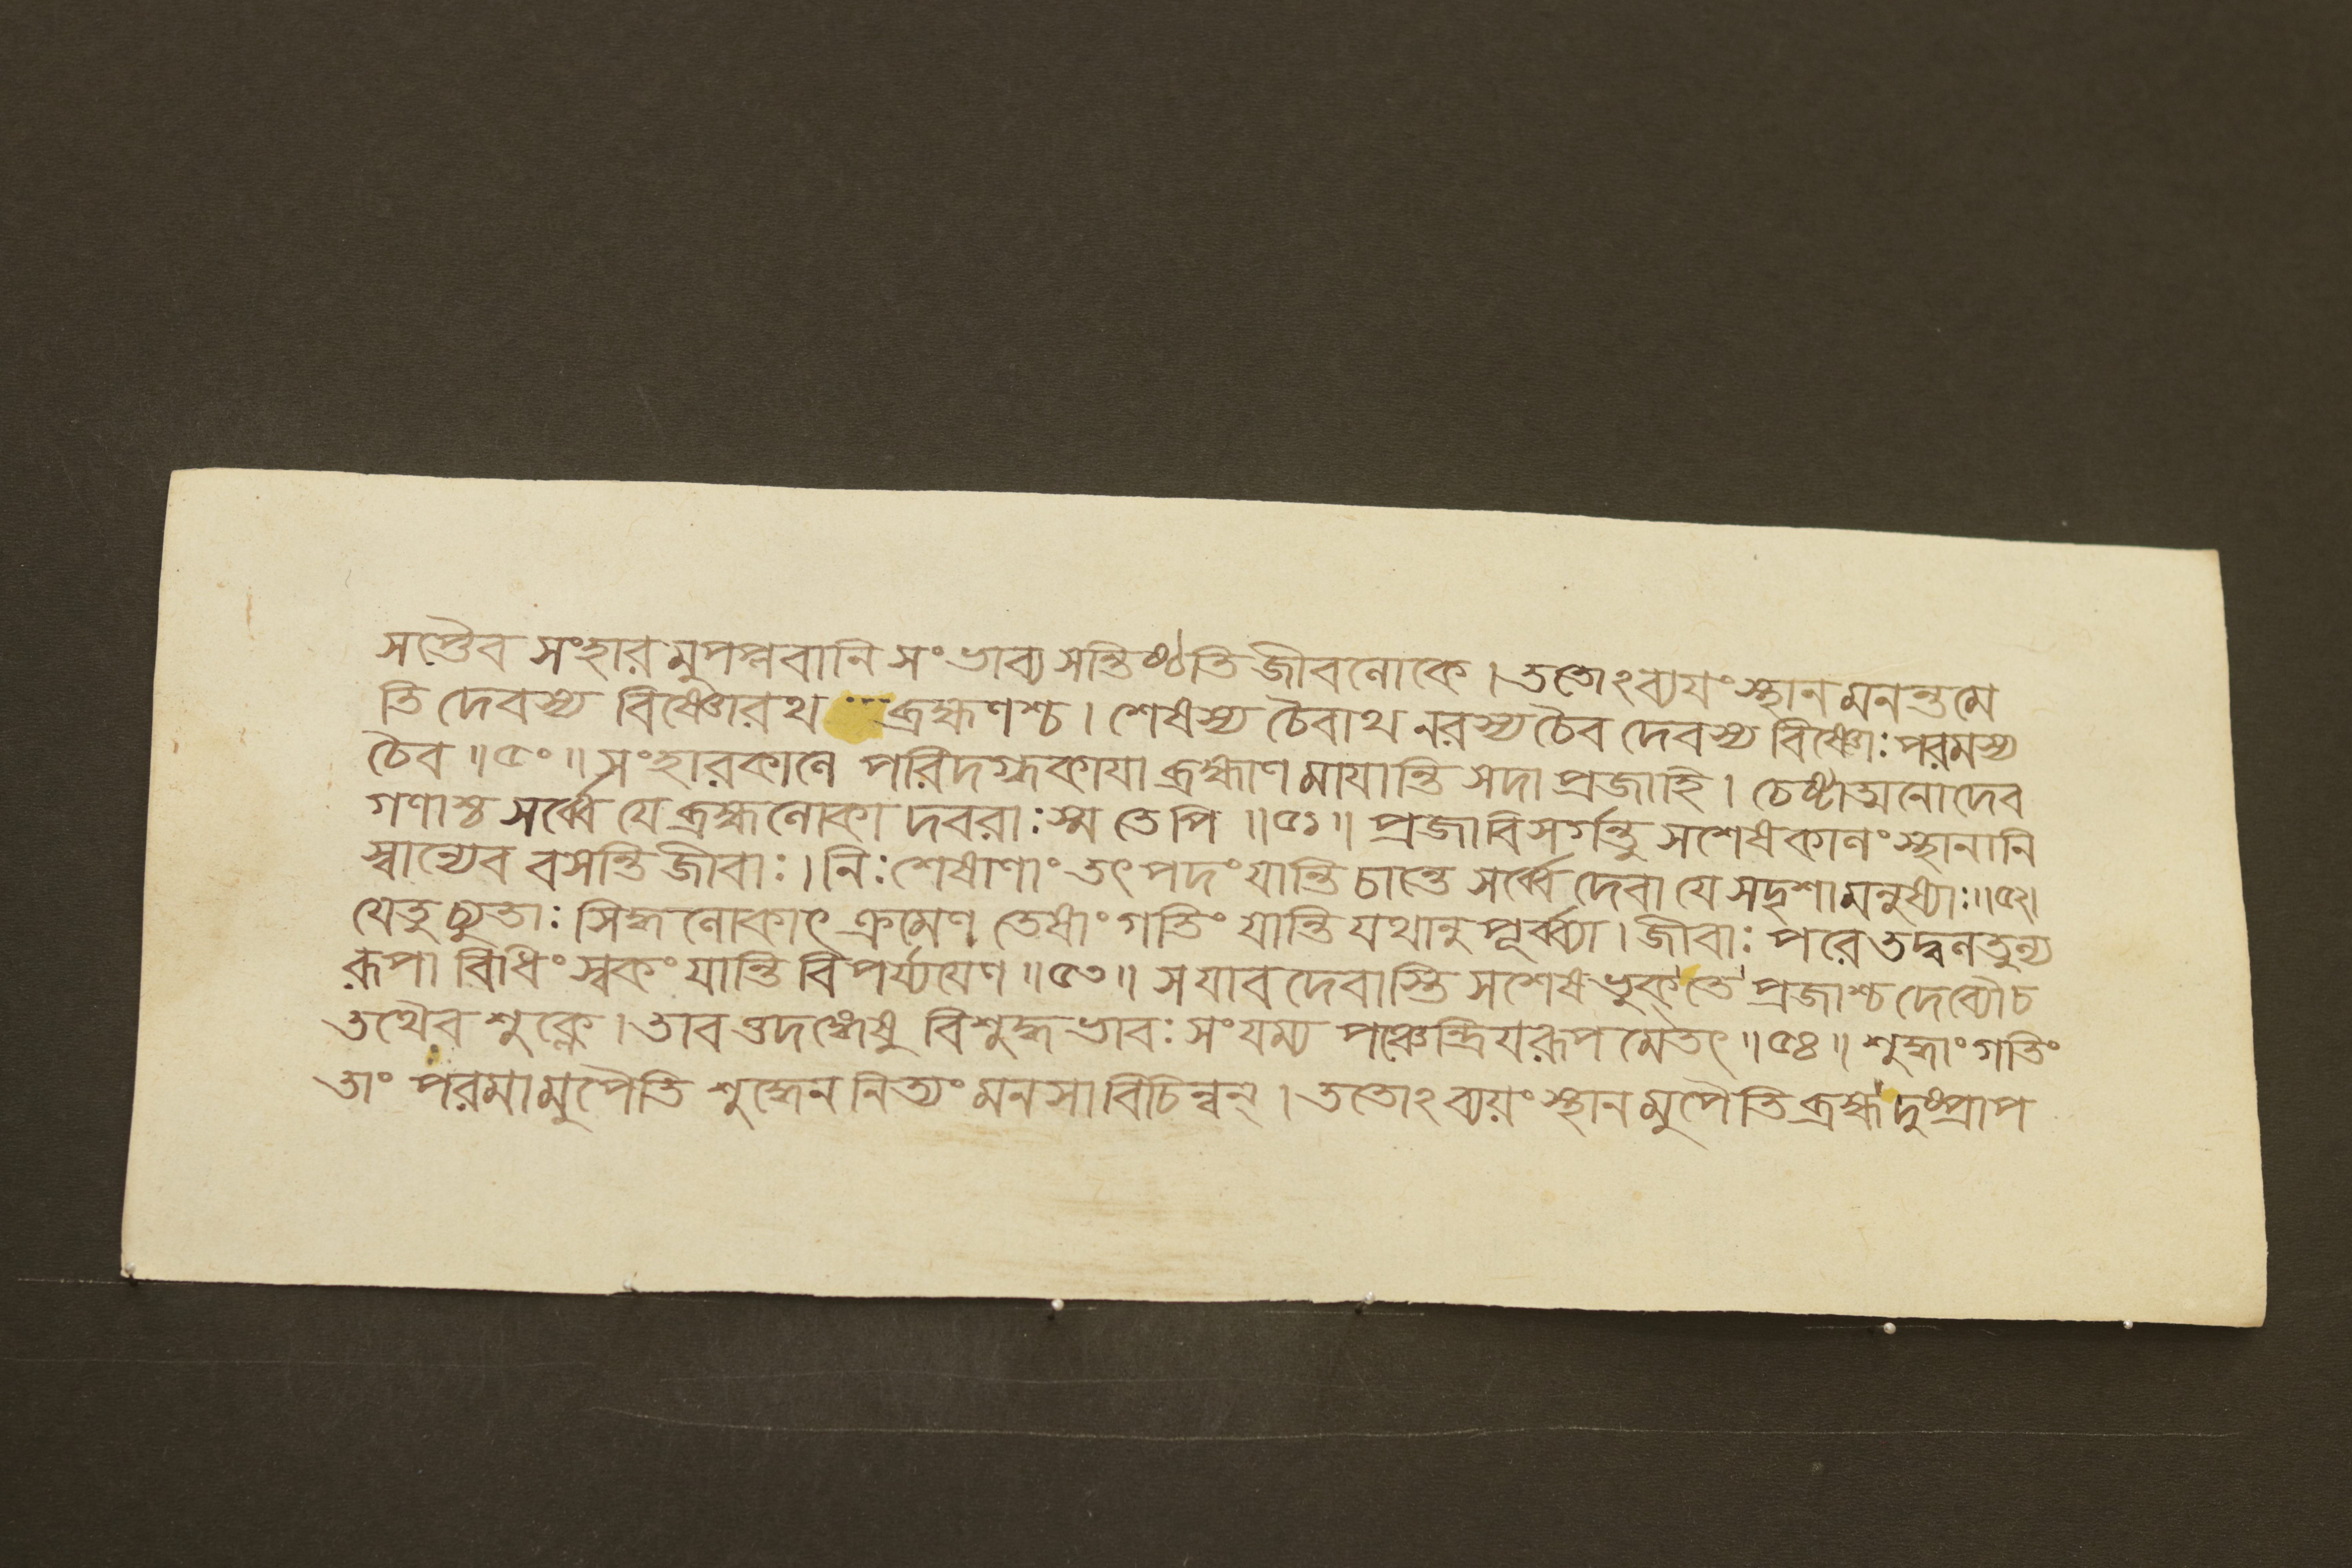 সপ্তৈব সংহারমুপপ্লবানি সংভাব্য সন্তিষ্ঠতি জীবলোকে । ততোঽব্যযং স্থানমনন্তমে
তি দেবস্য বিষ্ণোরথ ব্রহ্মণশ্চ । শেষস্য চৈবাথ নরস্য চৈব দেবস্য বিষ্ণোঃ পরমস্য
চৈব ॥ ৫০ ॥ সংহারকালে পরিদগ্ধকাযা ব্রহ্মাণমাযান্তি সদা প্রজাহি । চেষ্টাত্মনো দেব
গণাশ্চ সর্ব্বে যে ব্রহ্মলোকা দবরাঃ স্ম তেপি ॥ ৫১ ॥ প্রজাবিসর্গন্তু সশেষকালং স্থানানি
স্বান্যেব বসন্তি জীবাঃ । নিঃশেষাণাং তৎ পদং যান্তি চান্তে সর্ব্বে দেবা যে সদৃশা মনুষ্যাঃ ॥ ৫২ ।
যেতু চ্যুতাঃ সিদ্ধলোকাৎ ক্রমেণ তেষাং গতিং যান্তি যথানুপূর্ব্ব্যা । জীবাঃ পরে তদ্বলতুল্য
রূপা বিধিং স্বকং যান্তি বিপর্য্যযেণ ॥ ৫৩ ॥ স যাবদেবাস্তি সশেষভুক্ তে প্রজাশ্চ দেব্যৌ চ
তথৈব শুক্লে । তাবত্তদঙ্গেষু বিশুদ্ধভাবঃ সংযম্য পঞ্চেন্দ্রিযরূপমেতৎ ॥ ৫৪ ॥ শুদ্ধাং গতিং
তাং পরমামুপৈতি শুদ্ধেন নিত্যং মনসা বিচিন্বন্ । ততোঽব্যয়ং স্থানমুপৈতি ব্রহ্ম দুষ্প্রাপ